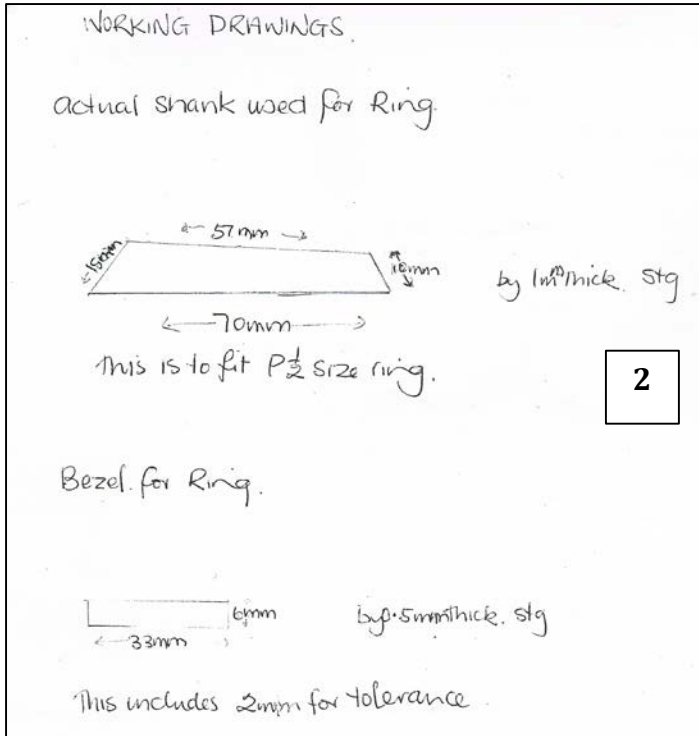 WORKING DRAWINGS.
Actual shank used for Ring.
57mm
15mm
10mm
by 1mm thick. Stg
70mm
This is to fit P½ size ring.
2
Bezel for Ring.
6mm
by 0.5mm thick. Stg
33mm
This includes 2mm for tolerance.